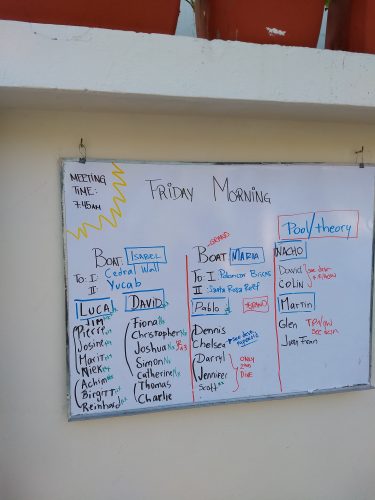 MEETING
TIME:
7:45AM
FRIDAY MORNING
BOAT: ISABEL
To: I: Cedral Wall
II: Yucab
LUCA
Jim
Pierre
Josine
Marit
Niek
Achim
Birgitt
Reinhard
DAVID
Fiona
Christopher
Joshua
Simon
Catherine
Thomas
Charlie
BOAT MARIA
To: I: Palancar Bricks
II: Santa Rosa Reef
Pablo
Dennis
Chelsea
Darryl
Jennifer
Scott
ONLY
2ND
DIVE
Pool/theory
NACHO
David
COLIN
Martin
Glen
Juan Fran